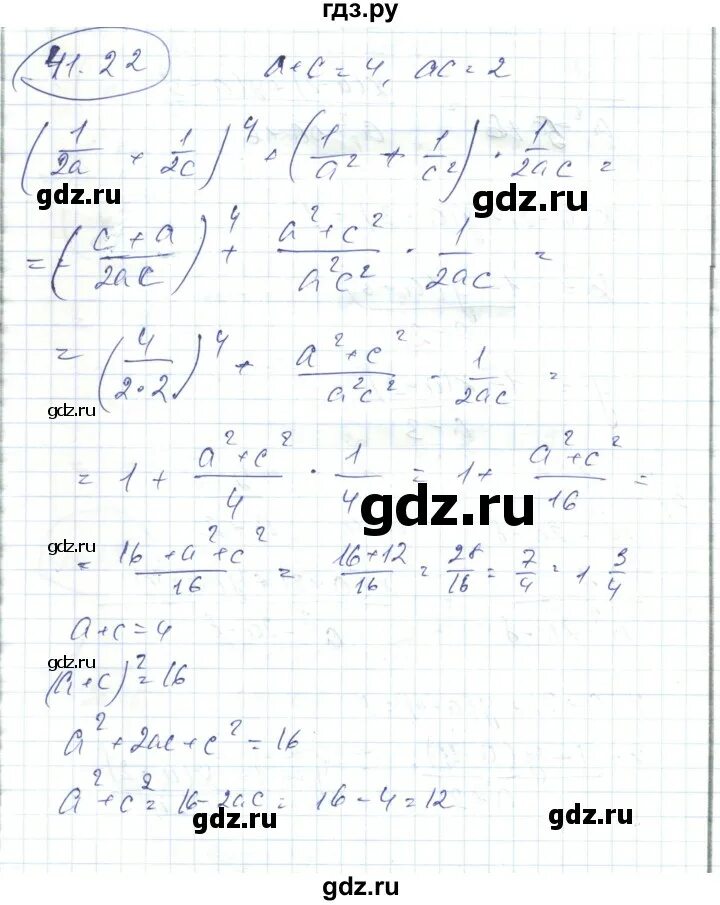 гдз.ру
41.22 a+c=4, ac=2
(1/2a + 1/2c)^4 + (1/a² + 1/c²) · 1/2ac =
gdz.ru gdz.ru
= (c+a/2ac)^4 + a²+c²/a²c² · 1/2ac =
= (4/2·2)^4 + a²+c²/a²c² · 1/2ac =
gdz.ru
= 1 + a²+c²/4 · 1/4 = 1 + a²+c²/16 =
gdz.ru
gdz.ru
= 16+a²+c²/16 = 16+12/16 = 28/16 = 7/4 = 1 3/4
a+c=4
gdz.ru
(a+c)²=16
a²+2ac+c²=16
a²+c²=16-2ac=16-4=12
gdz.ru gdz.ru
gdz.ru